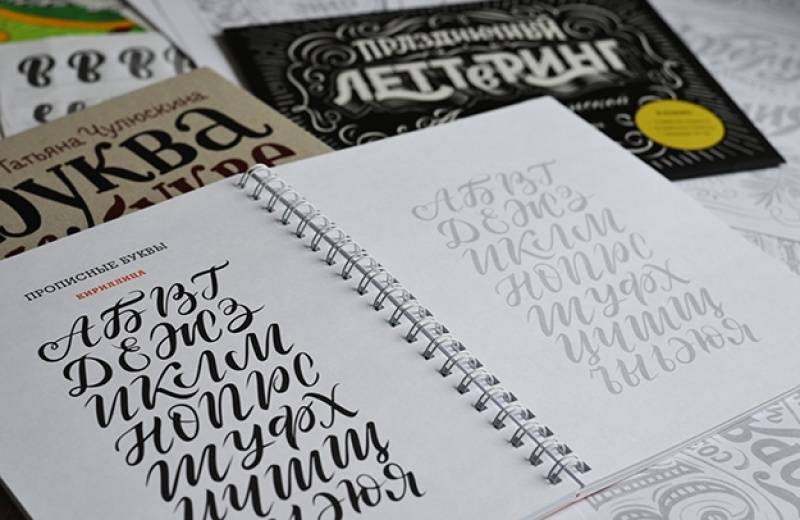 ПРАЗДНИЧНЫЙ
ЛЕТТЕРИНГ
Татьяна Чулюскина
Буква
к букве
ПРОПИСНЫЕ БУКВЫ
КИРИЛЛИЦА
АБВГ
ДЕЖЗ
ИКЛМ
НОПРС
ТУФХ
ЦЧШЩ
ЫЬЭЮЯ
АБВГ
ДЕЖЗ
ИКЛМ
НОПРС
ТУФХ
ЦЧШЩ
ЪЫЬЭЮЯ
В В В В